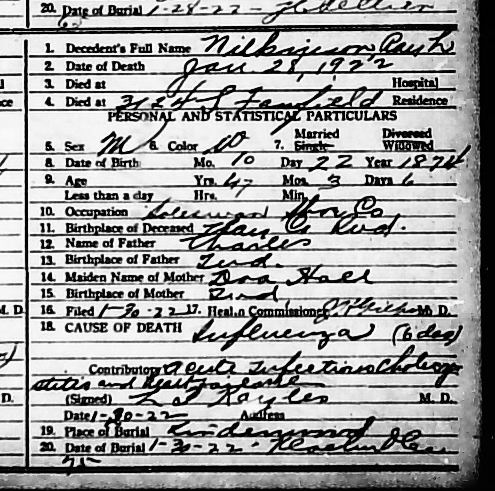 20. Date of Burial 1-28-22 -
1. Decedent's Full Name Wilkinson
2. Date of Death Jan 28, 1922
3. Died at Hospital
4. Died at S Fairfield Residence
PERSONAL AND STATISTICAL PARTICULARS
Married Divorced
5. Sex M 6. Color W 7. Single Widowed
8. Date of Birth Mo. 10 Day 22 Year 1874
9. Age Yrs. 47 Mos. 3 Days 6
Less than a day Hrs. Min.
10. Occupation Salesman Co
11. Birthplace of Deceased Co Ind.
12. Name of Father Charles
13. Birthplace of Father Ind.
14. Maiden Name of Mother Hall
15. Birthplace of Mother Ind
M. D. 16. Filed 1-30-22 17. Health Commissioner M. D.
18. CAUSE OF DEATH Influenza (6 das)
Contributory Acute Infectious Cholecy
stitis and
D. (Signed) M. D.
Date 1-30-22 Address
19. Place of Burial Lindenwood
20. Date of Burial 1-30-22
75